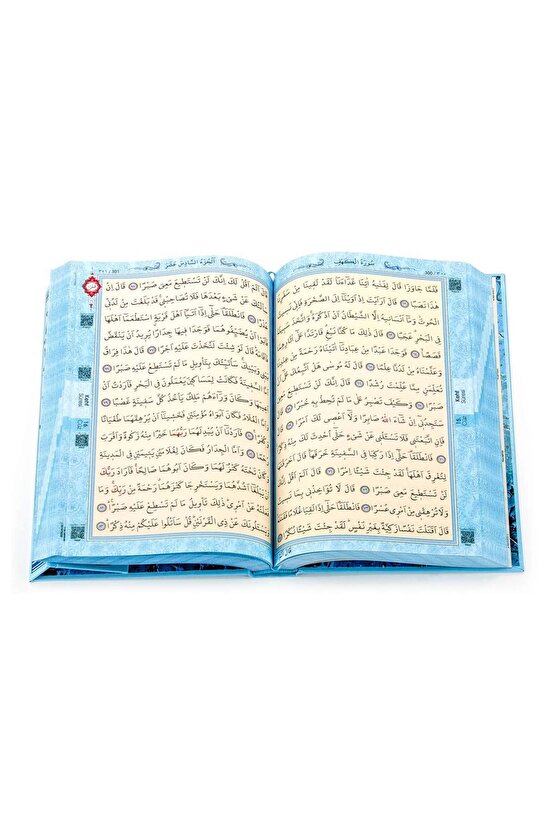 سُورَةُ الْكَهْفِ
300 / ٣٠٠
فَلَمَّا جَاوَزَا قَالَ لِفَتٰيهُ اٰتِنَا غَدَٓاءَنَا لَقَدْ لَقِينَا مِنْ سَفَرِنَا
هٰذَا نَصَبًا قَالَ اَرَاَيْتَ اِذْ اَوَيْنَٓا اِلَى الصَّخْرَةِ فَاِنِّي نَسِيتُ
الْحُوتَ وَمَٓا اَنْسَانِيهُ اِلَّا الشَّيْطَانُ اَنْ اَذْكُرَهُ وَاتَّخَذَ سَبِيلَهُ
فِي الْبَحْرِ عَجَبًا قَالَ ذٰلِكَ مَا كُنَّا نَبْغِ فَارْتَدَّا عَلٰٓى اٰثَارِهِمَا
قَصَصًا فَوَجَدَا عَبْدًا مِنْ عِبَادِنَٓا اٰتَيْنَاهُ رَحْمَةً مِنْ عِنْدِنَا
وَعَلَّمْنَاهُ مِنْ لَدُنَّا عِلْمًا قَالَ لَهُ مُوسٰى هَلْ اَتَّبِعُكَ عَلٰٓى اَنْ
تُعَلِّمَنِ مِمَّا عُلِّمْتَ رُشْدًا قَالَ اِنَّكَ لَنْ تَسْتَطِيعَ مَعِيَ
صَبْرًا وَكَيْفَ تَصْبِرُ عَلٰى مَا لَمْ تُحِطْ بِهِ خُبْرًا قَالَ
سَتَجِدُنِٓي اِنْ شَٓاءَ اللّٰهُ صَابِرًا وَلَٓا اَعْصِي لَكَ اَمْرًا قَالَ
فَاِنِ اتَّبَعْتَنِي فَلَا تَسْـَٔلْنِي عَنْ شَيْءٍ حَتّٰٓى اُحْدِثَ لَكَ مِنْهُ
ذِكْرًا فَانْطَلَقَا حَتّٰٓى اِذَا رَكِبَا فِي السَّفِينَةِ خَرَقَهَا قَالَ اَخَرَقْتَهَا
لِتُغْرِقَ اَهْلَهَا لَقَدْ جِئْتَ شَيْـًٔا اِمْرًا قَالَ اَلَمْ اَقُلْ اِنَّكَ
لَنْ تَسْتَطِيعَ مَعِيَ صَبْرًا قَالَ لَا تُؤَاخِذْنِي بِمَا نَسِيتُ
وَلَا تُرْهِقْنِي مِنْ اَمْرِي عُسْرًا فَانْطَلَقَا حَتّٰٓى اِذَا لَقِيَا غُلَامًا فَقَتَلَهُ
قَالَ اَقَتَلْتَ نَفْسًا زَكِيَّةً بِغَيْرِ نَفْسٍ لَقَدْ جِئْتَ شَيْـًٔا نُكْرًا
Kehf
Sûresi
اَلْجُزْءُ السَّادِسُ عَشَرَ
٣٠١ / 301
قَالَ اَلَمْ اَقُلْ لَكَ اِنَّكَ لَنْ تَسْتَطِيعَ مَعِيَ صَبْرًا قَالَ اِنْ
سَاَلْتُكَ عَنْ شَيْءٍ بَعْدَهَا فَلَا تُصَاحِبْنِي قَدْ بَلَغْتَ مِنْ لَدُنِّي
عُذْرًا فَانْطَلَقَا حَتّٰٓى اِذَٓا اَتَيَٓا اَهْلَ قَرْيَةٍ اسْتَطْعَمَٓا اَهْلَهَا
فَاَبَوْا اَنْ يُضَيِّفُوهُمَا فَوَجَدَا فِيهَا جِدَارًا يُرِيدُ اَنْ يَنْقَضَّ
فَاَقَامَهُ قَالَ لَوْ شِئْتَ لَتَّخَذْتَ عَلَيْهِ اَجْرًا قَالَ هٰذَا فِرَاقُ
بَيْنِي وَبَيْنِكَ سَاُنَبِّئُكَ بِتَأْوِيلِ مَا لَمْ تَسْتَطِعْ عَلَيْهِ صَبْرًا
اَمَّا السَّفِينَةُ فَكَانَتْ لِمَسَاكِينَ يَعْمَلُونَ فِي الْبَحْرِ فَاَرَدْتُ اَنْ
اَعِيبَهَا وَكَانَ وَرَٓاءَهُمْ مَلِكٌ يَأْخُذُ كُلَّ سَفِينَةٍ غَصْبًا
وَاَمَّا الْغُلَامُ فَكَانَ اَبَوَاهُ مُؤْمِنَيْنِ فَخَشِينَٓا اَنْ يُرْهِقَهُمَا طُغْيَانًا
وَكُفْرًا فَاَرَدْنَٓا اَنْ يُبْدِلَهُمَا رَبُّهُمَا خَيْرًا مِنْهُ زَكٰوةً وَاَقْرَبَ
رُحْمًا وَاَمَّا الْجِدَارُ فَكَانَ لِغُلَامَيْنِ يَتِيمَيْنِ فِي الْمَدِينَةِ
وَكَانَ تَحْتَهُ كَنْزٌ لَهُمَا وَكَانَ اَبُوهُمَا صَالِحًا فَاَرَادَ رَبُّكَ
اَنْ يَبْلُغَٓا اَشُدَّهُمَا وَيَسْتَخْرِجَا كَنْزَهُمَا رَحْمَةً مِنْ رَبِّكَ وَمَا
فَعَلْتُهُ عَنْ اَمْرِي ذٰلِكَ تَأْوِيلُ مَا لَمْ تَسْطِعْ عَلَيْهِ صَبْرًا
وَيَسْـَٔلُونَكَ عَنْ ذِي الْقَرْنَيْنِ قُلْ سَاَتْلُوا عَلَيْكُمْ مِنْهُ ذِكْرًا
Kehf
Sûresi